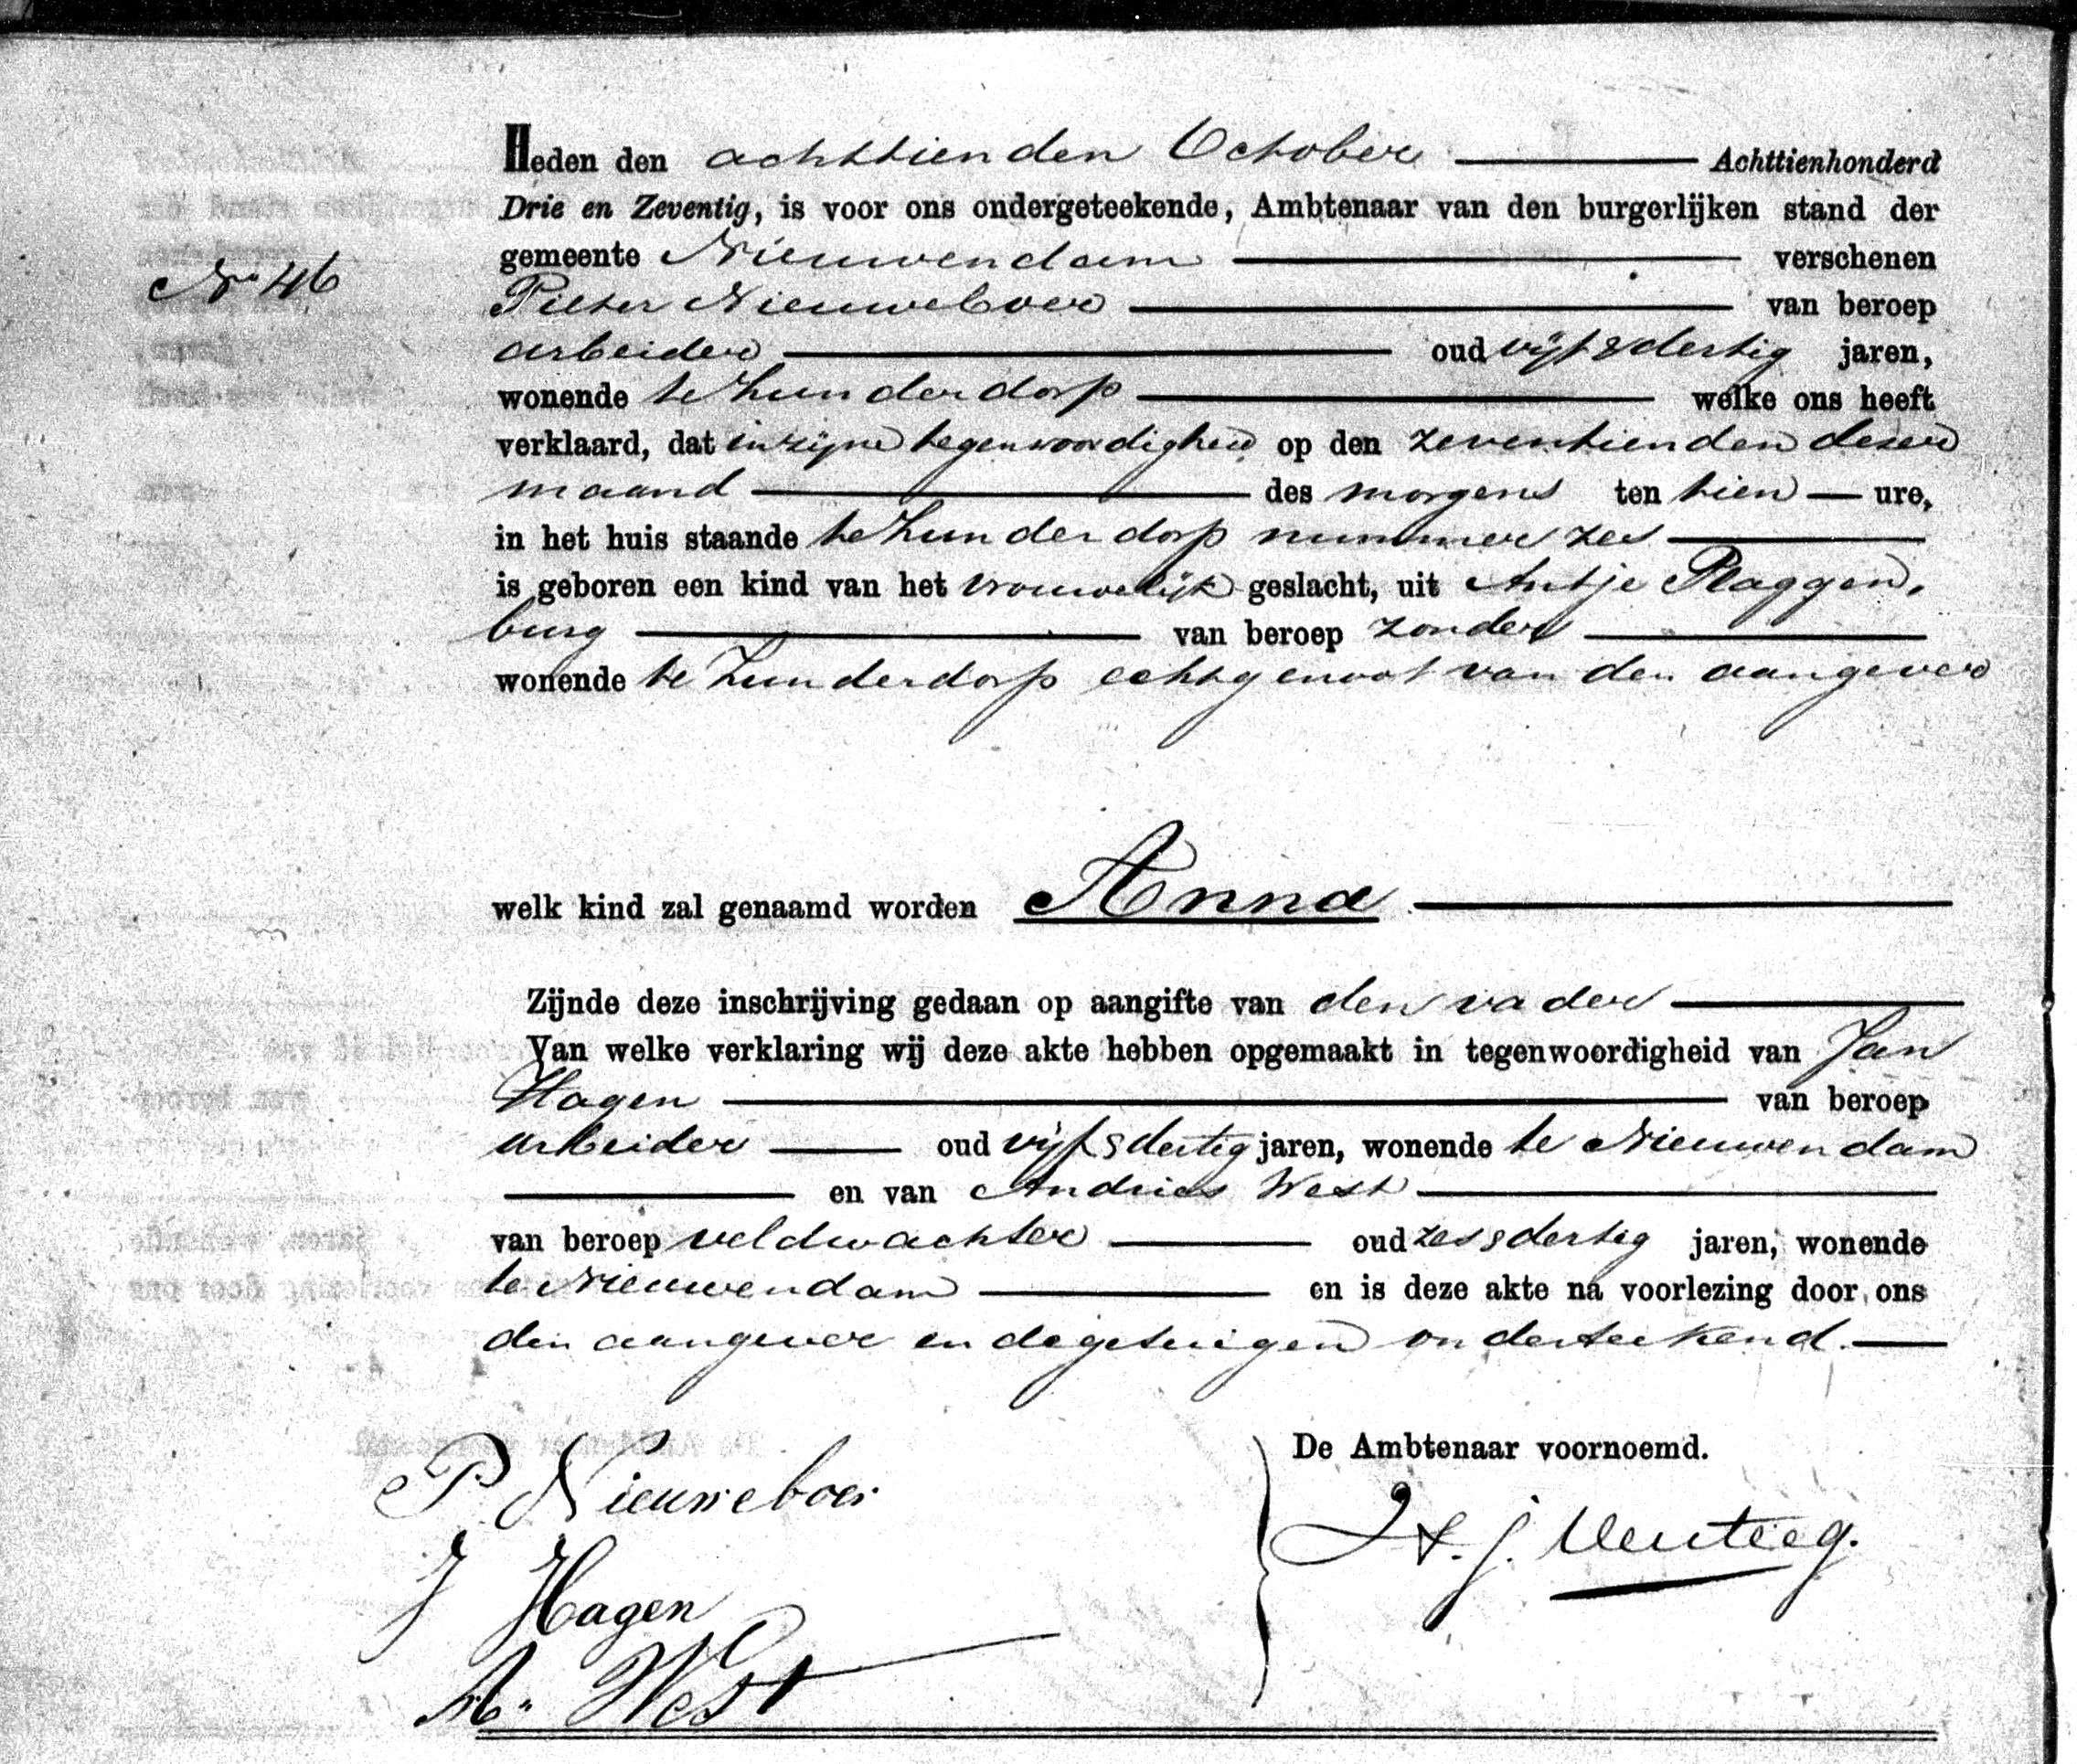 Heden den achttienden October Achttienhonderd
Drie en Zeventig, is voor ons ondergeteekende, Ambtenaar van den burgerlijken stand der
gemeente Nieuwendam verschenen
No 46
Pieter Nieuweboer van beroep
arbeider oud vijf & dertig jaren,
wonende te Zunderdorp welke ons heeft
verklaard, dat in zijne tegenwoordigheid op den zeventienden dezer
maand des morgens ten tien ure,
in het huis staande te Zunderdorp nummer zes
is geboren een kind van het vrouwelijk geslacht, uit Antje Plaggen,
burg van beroep zonder
wonende te Zunderdorp echtgenoot van den aangever
welk kind zal genaamd worden Anna
Zijnde deze inschrijving gedaan op aangifte van den vader
Van welke verklaring wij deze akte hebben opgemaakt in tegenwoordigheid van Jan
Hagen van beroep
arbeider oud vijf & dertig jaren, wonende te Nieuwendam
en van Andries West
van beroep veldwachter oud zes & dertig jaren, wonende
te Nieuwendam en is deze akte na voorlezing door ons
den aangever en de getuigen onderteekend.
De Ambtenaar voornoemd.
P. Nieuweboer
J Hagen
A. West